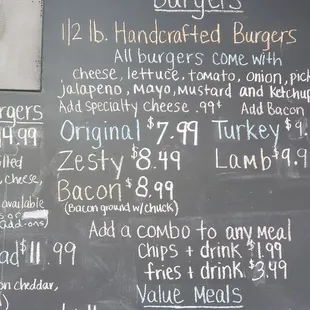 Burgers
1/2 lb. Handcrafted Burgers
All burgers come with
cheese, lettuce, tomato, onion, pick
jalapeno, Mayo, Mustard and Ketchup
Add specialty cheese .99¢ Add Bacon
Original $7.99 Turkey $9.
Zesty $8.49 Lamb $9.9
Bacon $8.99
(Bacon ground w/chuck)
Add a combo to any meal
Chips + drink $1.99
fries + drink $3.49
Value Meals
urgers
4.99
illed
cheese,
available
s or
add-ons)
ad $11.99
on cheddar,